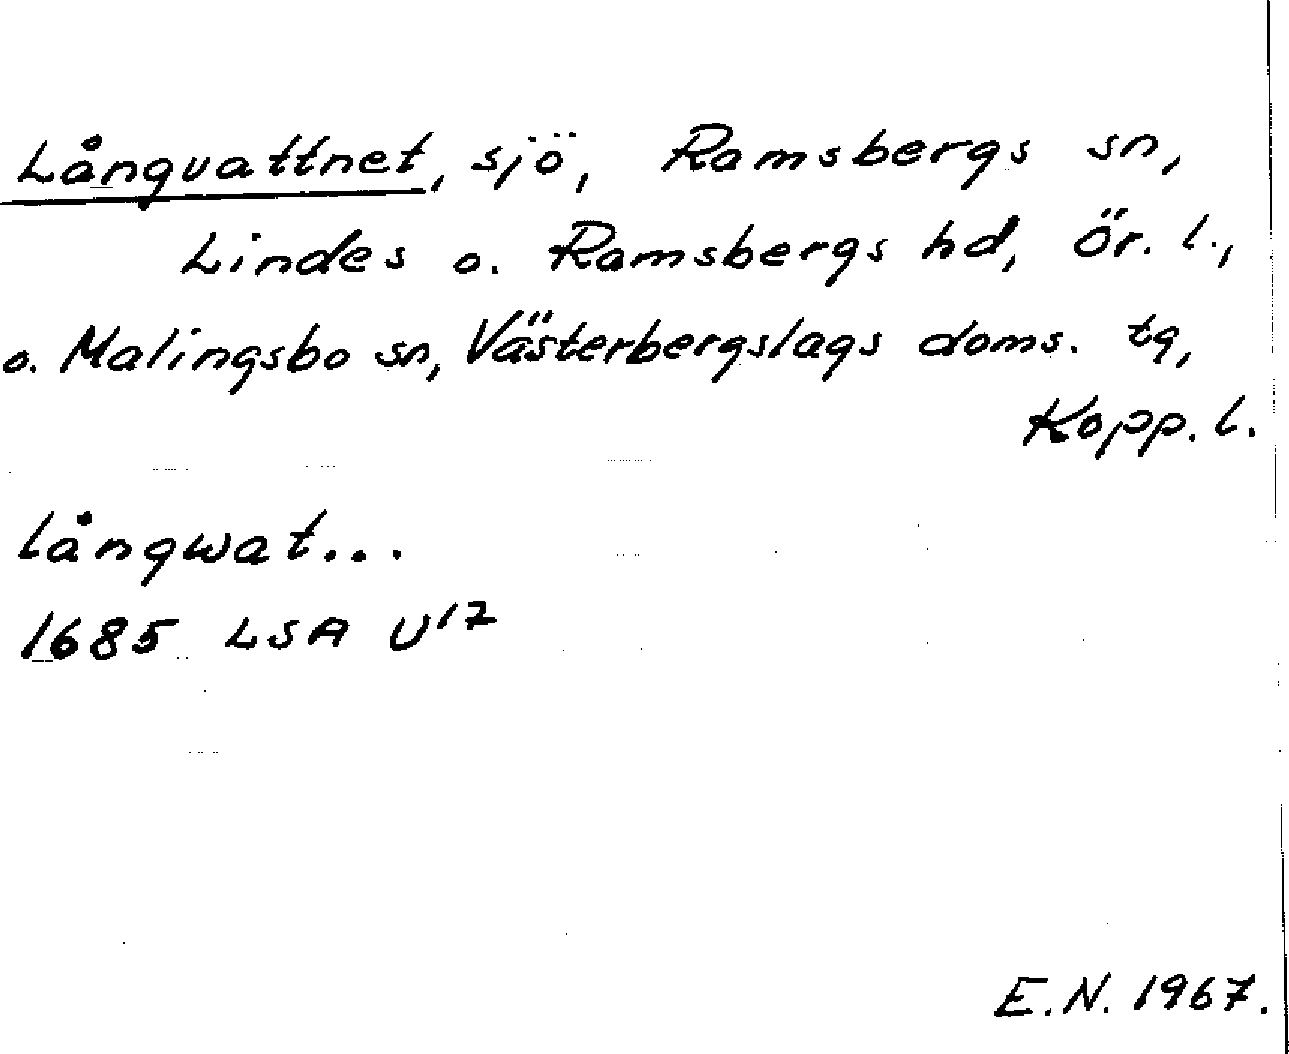 Långvattnet, sjö, Ramsbergs sn,
Lindes o. Ramsbergs hd, Ör. l.,
o. Malingsbo sn, Västerbergslags doms. tg,
Kopp. l.
långwat...
1685 LSA U17
E.N. 1967.